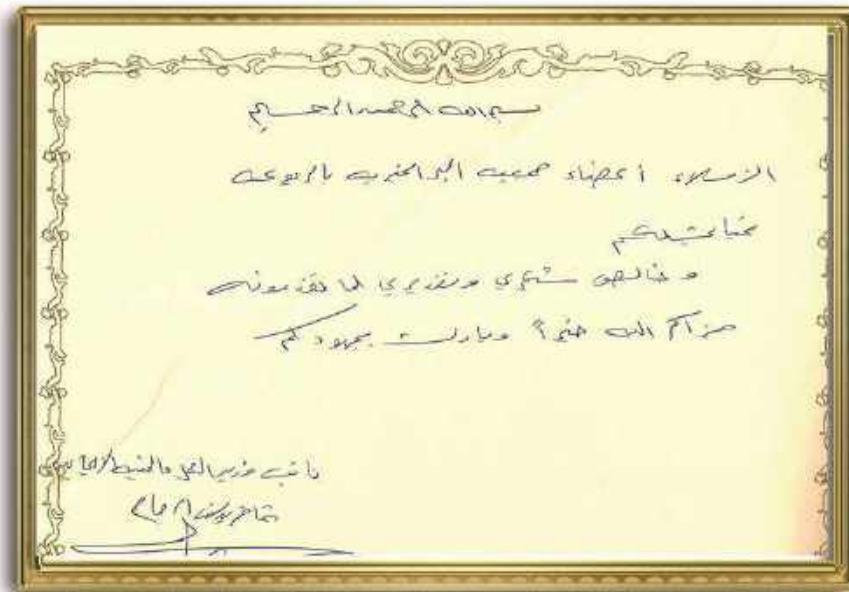 بسم الله الرحمن الرحيم
الزملاء أعضاء جمعية البر الخيرية بالربوعة
تحياتي لكم
وخالص شكري وتقديري لما تقدمونه
جزاكم الله خيراً وبارك بجهودكم
نائب وزير العمل والتنمية الاجتماعية
تماضر بنت يوسف الرماح